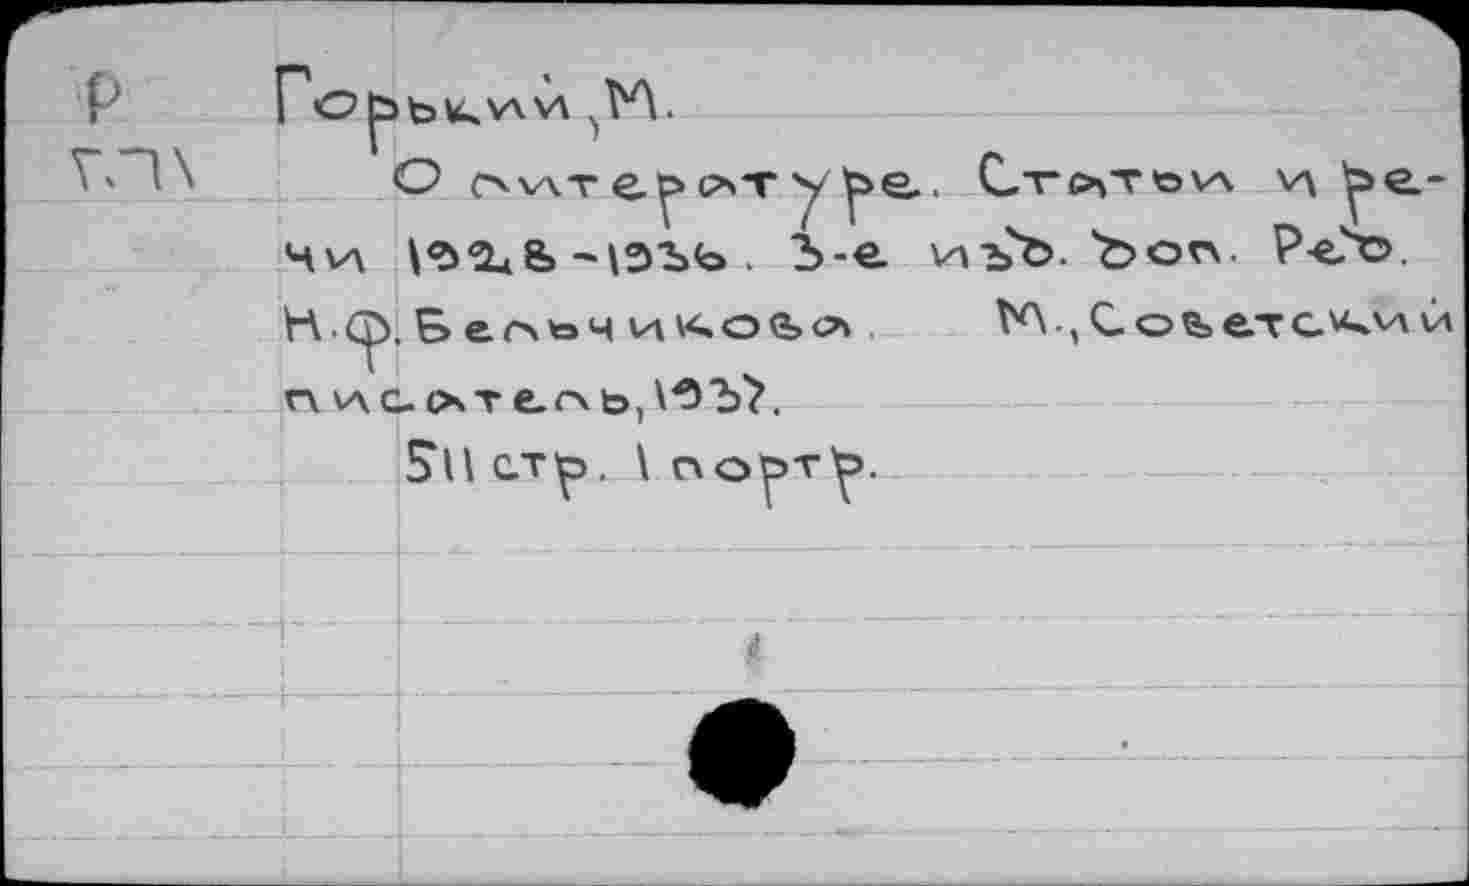 Р Горький, М.
Г.71 О литературе. Статьи и ре-
чи 1928-1936. 3-е изд. доп. Ред.
Н.Ф. Бельчикова. М., Советский
писатель, 1937.
511 стр. 1 портр.